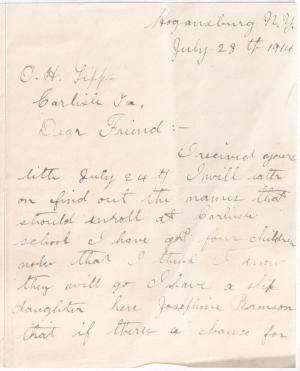 Hogansburg N.Y.
July 28th 1914
O. H. Lipps
Carlisle Pa,
Dear Friend:-
I recived youre
lette July 24th I will latter
on find out the names that
should enroll at Carlisle
school I have got four children
now that I think I know
they will go I have a step
daughter here Josephine Ramson
that if there a chance for